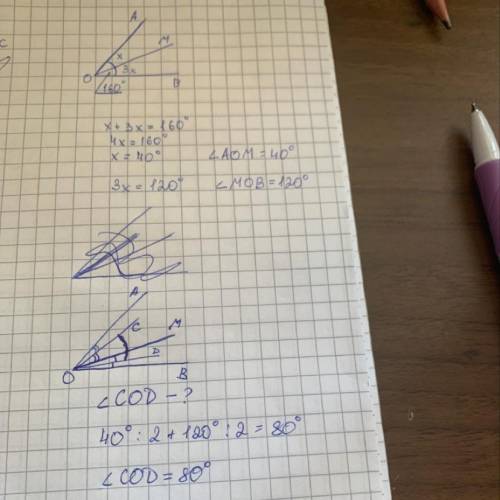 A
M
x
3x
O
B
160°
x + 3x = 160°
4x = 160°
x = 40° ∠AOM = 40°
3x = 120° ∠MOB = 120°
A
C
M
D
O
B
∠COD - ?
40° : 2 + 120° : 2 = 80°
∠COD = 80°